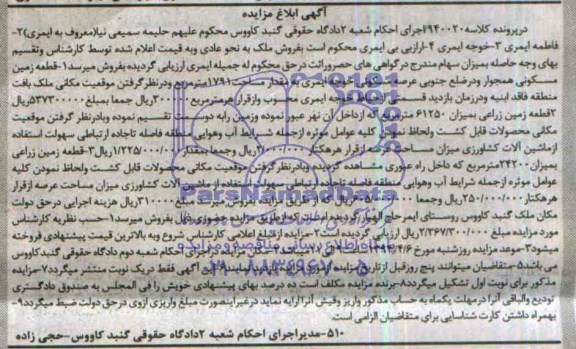 آگهی ابلاغ مزایده
درپرونده کلاسه ۹۴۰۰۲۰ اجرای احکام شعبه ۲ دادگاه حقوقی گنبد کاووس محکوم علیهم حلیمه سمیعی نیا معروف به ایمری ۲-
فاطمه ایمری ۳-خوجه ایمری ۴-ارازبی بی ایمری محکوم است بفروش ملک به نحو عادی وبه قیمت اعلام شده توسط کارشناس وتقسیم
بهای وجه حاصله بمیزان سهام مندرج درگواهی های حصروراثت درحق محکوم له جمیله ایمری ارزیابی گردیده بفروش میرسد ۱-قطعه زمین
مسکونی همجوار ودرضلع جنوبی عرصه مسکونی ایمری به مقدار مساحت ۱۷۹۱ مترمربع ودرنظر گرفتن موقعیت مکانی ملک بافت
منطقه فاقد ابنیه ودرزمان بازدید قسمتی از حیاط خوجه ایمری محسوب وازقرار هرمترمربع ۳۰۰۰۰۰ ریال جمعا بمبلغ ۵۳۷۳۰۰۰۰۰ ریال
۲قطعه زمین زراعی بمیزان ۶۱۲۵۰ مترمربع که ازداخل آن نهر عبور نموده وزمین رابه دوقسمت تقسیم نموده وبادرنظر گرفتن موقعیت
مکانی محصولات قابل کشت ولحاظ نمودن کلیه عوامل موثره ازجمله شرایط آب وهوایی منطقه فاصله تاجاده ارتباطی سهولت استفاده
ازماشین آلات کشاورزی میزان مساحت عرصه ازقرار هرهکتار ۲۰۰/۰۰۰/۰۰۰ ریال وجمعا بمقدار ۱/۲۲۵/۰۰۰/۰۰۰ ریال ۳-قطعه زمین زراعی
بمیزان ۲۴۲۰۰ مترمربع که داخل راه عبوری مشاهده گردید وبادرنظر گرفتن موقعیت مکانی محصولات قابل کشت ولحاظ نمودن کلیه
عوامل موثره ازجمله شرایط آب وهوایی منطقه فاصله تاجاده ارتباطی سهولت استفاده ازماشین آلات کشاورزی میزان مساحت عرصه ازقرار
هرهکتار ۲۵۰/۰۰۰/۰۰۰ ریال وجمعا ریال مبلغ ۳۱۰۰۰۰ ریال هزینه اجرایی درحق دولت
مکان ملک گنبد کاووس روستای ایمر گردیده است که از طریق مزایده حضوری ذیل بفروش میرسد ۱-حسب نظریه کارشناس
مورد مزایده مبلغ ۲/۳۶۷/۳۰۰/۰۰۰ ریال ارزیابی گردیده است ۲-مزایده ازمبلغ اعلامی کارشناس شروع وبه بالاترین قیمت پیشنهادی فروخته
میشود ۳-موعد مزایده روزشنبه مورخ مزایده اجرای احکام شعبه دوم دادگاه حقوقی گنبد کاووس
می باشد ۵-متقاضیان میتوانند پنج روزقبل ازتاریخ مزایده این آگهی فقط دریک نوبت منتشر میگردد ۷-مزایده
مذکور برای نوبت اول تشکیل میگردد ۸-برنده مزایده مکلف است ده درصد بهای پیشنهادی خویش را فی المجلس به صندوق دادگستری
تودیع والباقی آنرا درمهلت یکماه به حساب مذکور واریز وفیش آنرا ارایه نماید درغیراینصورت مبلغ واریزی ازوی درحق دولت ضبط میگردد ۹-
بهمراه داشتن کارت شناسایی برای متقاضیان الزامی است.
۵۱۰-مدیراجرای احکام شعبه ۲ دادگاه حقوقی گنبد کاووس-حجی زاده